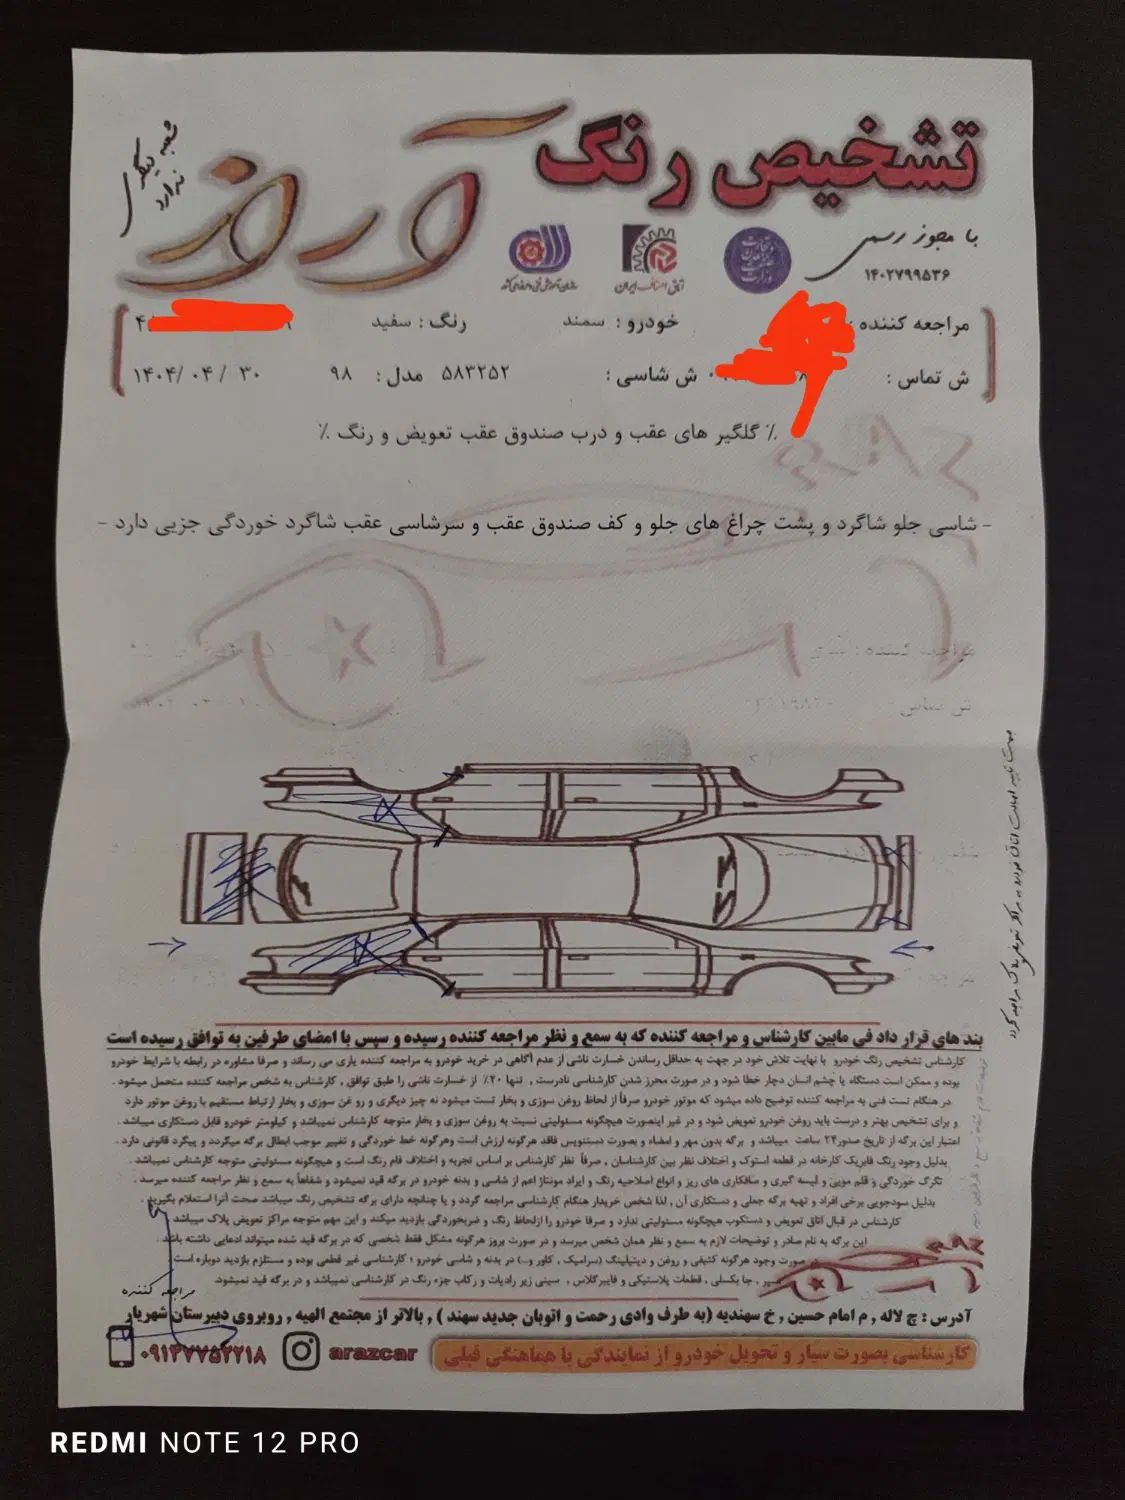 تشخیص رنگ
آراز
شعبه دیگری ندارد
با مجوز رسمی
۱۴۰۲۷۹۹۵۳۶
اتاق اصناف ایران
مراجعه کننده :
خودرو : سمند
رنگ : سفید
ش تماس :
ش شاسی : ۵۸۳۲۵۲
مدل : ۹۸
۱۴۰۴/ ۰۴ / ۳۰
٪ گلگیر های عقب و درب صندوق عقب تعویض و رنگ ٪
- شاسی جلو شاگرد و پشت چراغ های جلو و کف صندوق عقب و سرشاسی عقب شاگرد خوردگی جزیی دارد -
جهت تایید اصالت اتاق خودرو به مراکز تعویض پلاک مراجعه گردد
بند های قرار داد فی مابین کارشناس و مراجعه کننده که به سمع و نظر مراجعه کننده رسیده و سپس با امضای طرفین به توافق رسیده است
کارشناس تشخیص رنگ خودرو با نهایت تلاش خود در جهت به حداقل رساندن خسارت ناشی از عدم آگاهی در خرید خودرو به مراجعه کننده یاری می رساند و صرفا مشاوره در رابطه با شرایط خودرو
بوده و ممکن است دستگاه یا چشم انسان دچار خطا شود و در صورت محرز شدن کارشناسی نادرست , تنها ۲۰٪ از خسارت ناشی را طبق توافق , کارشناس به شخص مراجعه کننده متحمل میشود .
در هنگام تست فنی به مراجعه کننده توضیح داده میشود که موتور خودرو صرفاً از لحاظ روغن سوزی و بخار تست میشود نه چیز دیگری و رو غن سوزی و بخار ارتباط مستقیم با روغن موتور دارد
و برای تشخیص بهتر و درست باید روغن خودرو تعویض شود و در غیر اینصورت هیچگونه مسئولیتی نسبت به روغن سوزی و بخار متوجه کارشناس نمیباشد و کیلومتر خودرو قابل دستکاری میباشد .
اعتبار این برگه از تاریخ صدور ۲۴ ساعت میباشد و برگه بدون مهر و امضاء و بصورت دستنویس فاقد هرگونه ارزش است وهرگونه خط خوردگی و تغییر موجب ابطال برگه میگردد و پیگرد قانونی دارد .
بدلیل وجود رنگ فابریک کارخانه در قطعه استوک و اختلاف نظر بین کارشناسان , صرفاً نظر کارشناس بر اساس تجربه و اختلاف فام رنگ است و هیچگونه مسئولیتی متوجه کارشناس نمیباشد .
تگرک خوردگی و قلم مویی و لیسه گیری و صافکاری های ریز و انواع اصلاحیه رنگ و ایراد مونتاژ اعم از شاسی و بدنه خودرو در برگه قید نمیشود و شفاهاً به سمع و نظر مراجعه کننده میرسد .
بدلیل سودجویی برخی افراد و تهیه برگه جعلی و دستکاری آن , لذا شخص خریدار هنگام کارشناسی مراجعه گردد و یا چنانچه دارای برگه تشخیص رنگ میباشد صحت آنرا استعلام بگیرید
کارشناس در قبال اتاق تعویض و دستکوب هیچگونه مسئولیتی ندارد و صرفا خودرو را ازلحاظ رنگ و ضربخوردگی بازدید میکند و این مهم متوجه مراکز تعویض پلاک میباشد
این برگه به نام صادر و توضیحات لازم به سمع و نظر همان شخص میرسد و در صورت بروز هرگونه مشکل فقط شخصی که در برگه قید شده میتواند ادعایی داشته باشد .
صورت وجود هرگونه کثیفی و روغن و دیتیلینگ (سرامیک , کاور و...) در بدنه و شاسی خودرو ؛ کارشناسی غیر قطعی بوده و مستلزم بازدید دوباره است
سپر , جا بکسلی , قطعات پلاستیکی و فایبرگلاس , سینی زیر رادیات و رکاب جزء رنگ در کارشناسی نمیباشد و در برگه قید نمیشود.
مراجعه کننده
آدرس : چ لاله , م امام حسین , خ سهندیه (به طرف وادی رحمت و اتوبان جدید سهند ) , بالاتر از مجتمع الهیه , روبروی دبیرستان شهریار
کارشناسی بصورت سیار و تحویل خودرو از نمایندگی با هماهنگی قبلی
arazcar
۰۹۱۴۷۷۵۲۲۱۸
REDMI NOTE 12 PRO